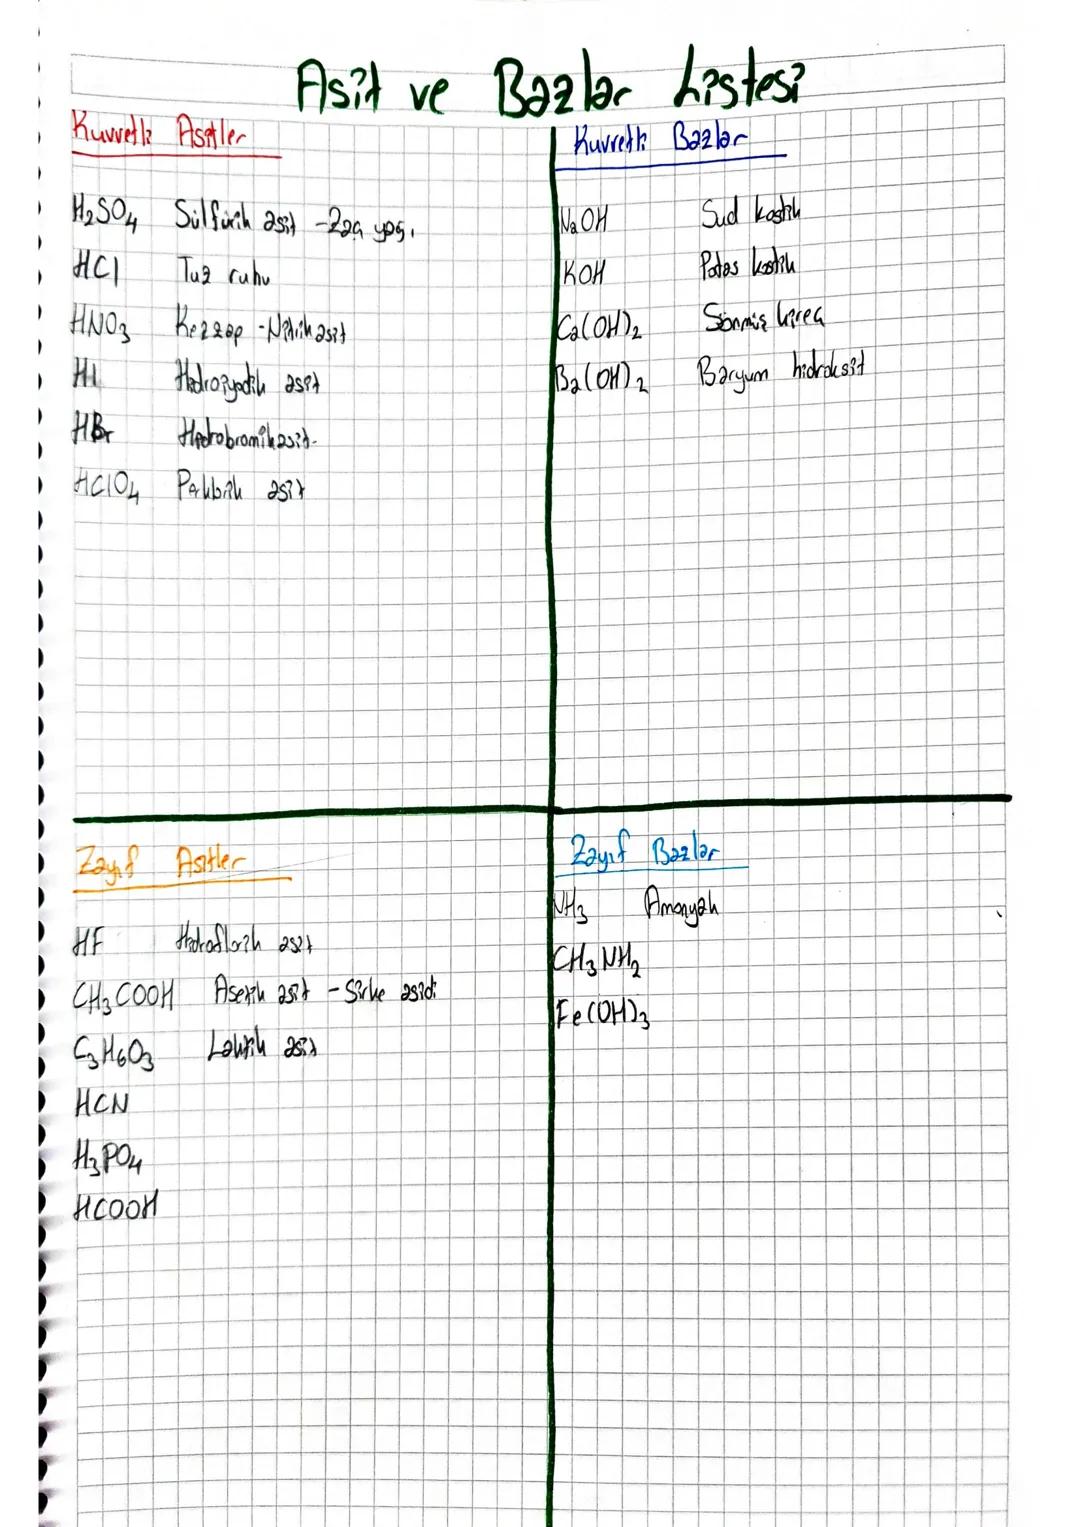 Asit ve Bazlar Listesi
Kuvvetli Asitler
H₂SO₄ Sülfürik asit - Zaç yağı
HCl Tuz ruhu
HNO₃ Kezzap - Nitrik asit
HI Hidroiyodik asit
HBr Hidrobromik asit
HClO₄ Perklorik asit
Kuvvetli Bazlar
NaOH Sud kostik
KOH Potas kostik
Ca(OH)₂ Sönmüş kireç
Ba(OH)₂ Baryum hidroksit
Zayıf Asitler
HF Hidroflorik asit
CH₃COOH Asetik asit - Sirke asidi
C₃H₆O₃ Laktik asit
HCN
H₃PO₄
HCOOH
Zayıf Bazlar
NH₃ Amonyak
CH₃NH₂
Fe(OH)₃